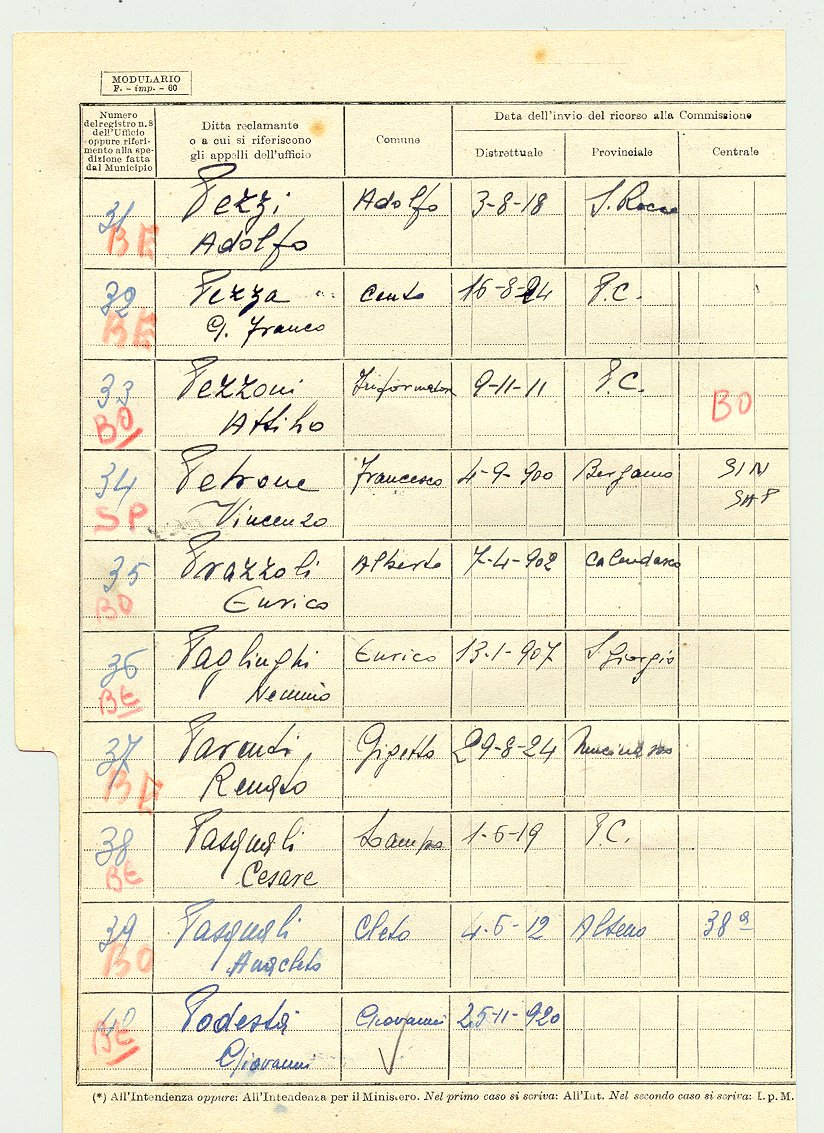 MODULARIO
F. - imp. - 60
Numero
del registro n. 8
dell'Ufficio
oppure riferi-
mento alla spe-
dizione fatta
dal Municipio
Ditta reclamante
o a cui si riferiscono
gli appelli dell'ufficio
Comune
Data dell'invio del ricorso alla Commissione
Distrettuale
Provinciale
Centrale
31 Pezzi Adolfo 3-8-18 S. Rocco
BE Adolfo
32 Pezza Cento 16-8-24 P.C.
BE G. Franco
33 Pezzoni 9-11-11 P.C. BO
BO Attilio
34 Petrone Francesco 4-9-900 Bergamo SIN
SP Vincenzo SAP
35 Prazzoli Alberto 7-4-902 Calendasco
BO Enrico
36 Paglinghi Enrico 13-1-907 S. Giorgio
BE Nemmio
37 Parenti Gipetto 29-8-24
BE Renato
38 Pasquali Lampo 1-6-19 P.C.
BE Cesare
39 Pasquali Cleto 4-6-12 Alseno 38a
BO Anacleto
40 Podestà Giovanni 25-11-920
BE Giovanni
(*) All'Intendenza oppure: All'Intendenza per il Ministero. Nel primo caso si scriva: All'Int. Nel secondo caso si scriva: I. p. M.